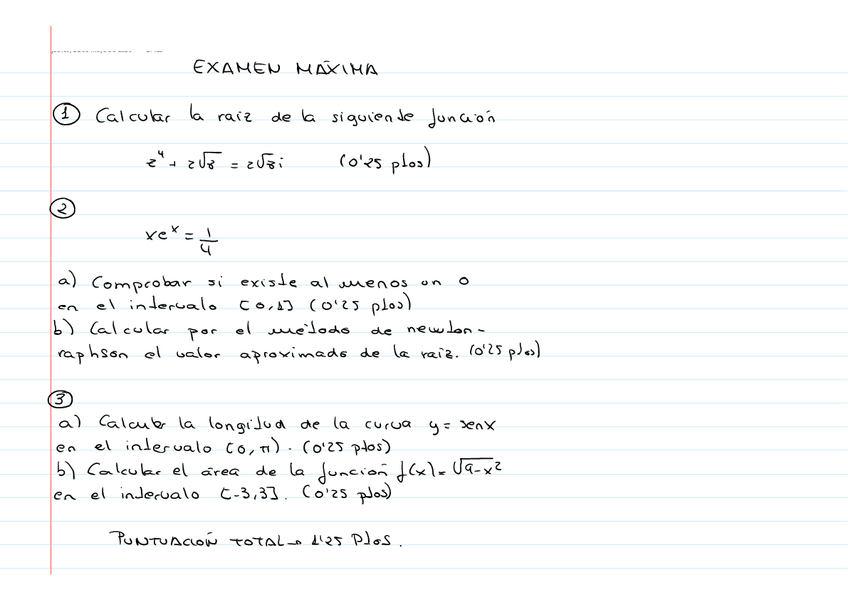 EXAMEN MÁXIMA
① Calcular la raiz de la siguiente función
z⁴ + 2√3 = 2√3i (0'25 ptos)
②
xeˣ = 1/4
a) Comprobar si existe al menos un 0
en el intervalo [0,1] (0'25 ptos)
b) Calcular por el método de newton-
raphson el valor aproximado de la raiz. (0'25 ptos)
③
a) Calcular la longitud de la curva y = senx
en el intervalo (0, π). (0'25 ptos)
b) Calcular el área de la función f(x) = √9-x²
en el intervalo [-3,3]. (0'25 ptos)
PUNTUACIÓN TOTAL → 1'25 PtOS.